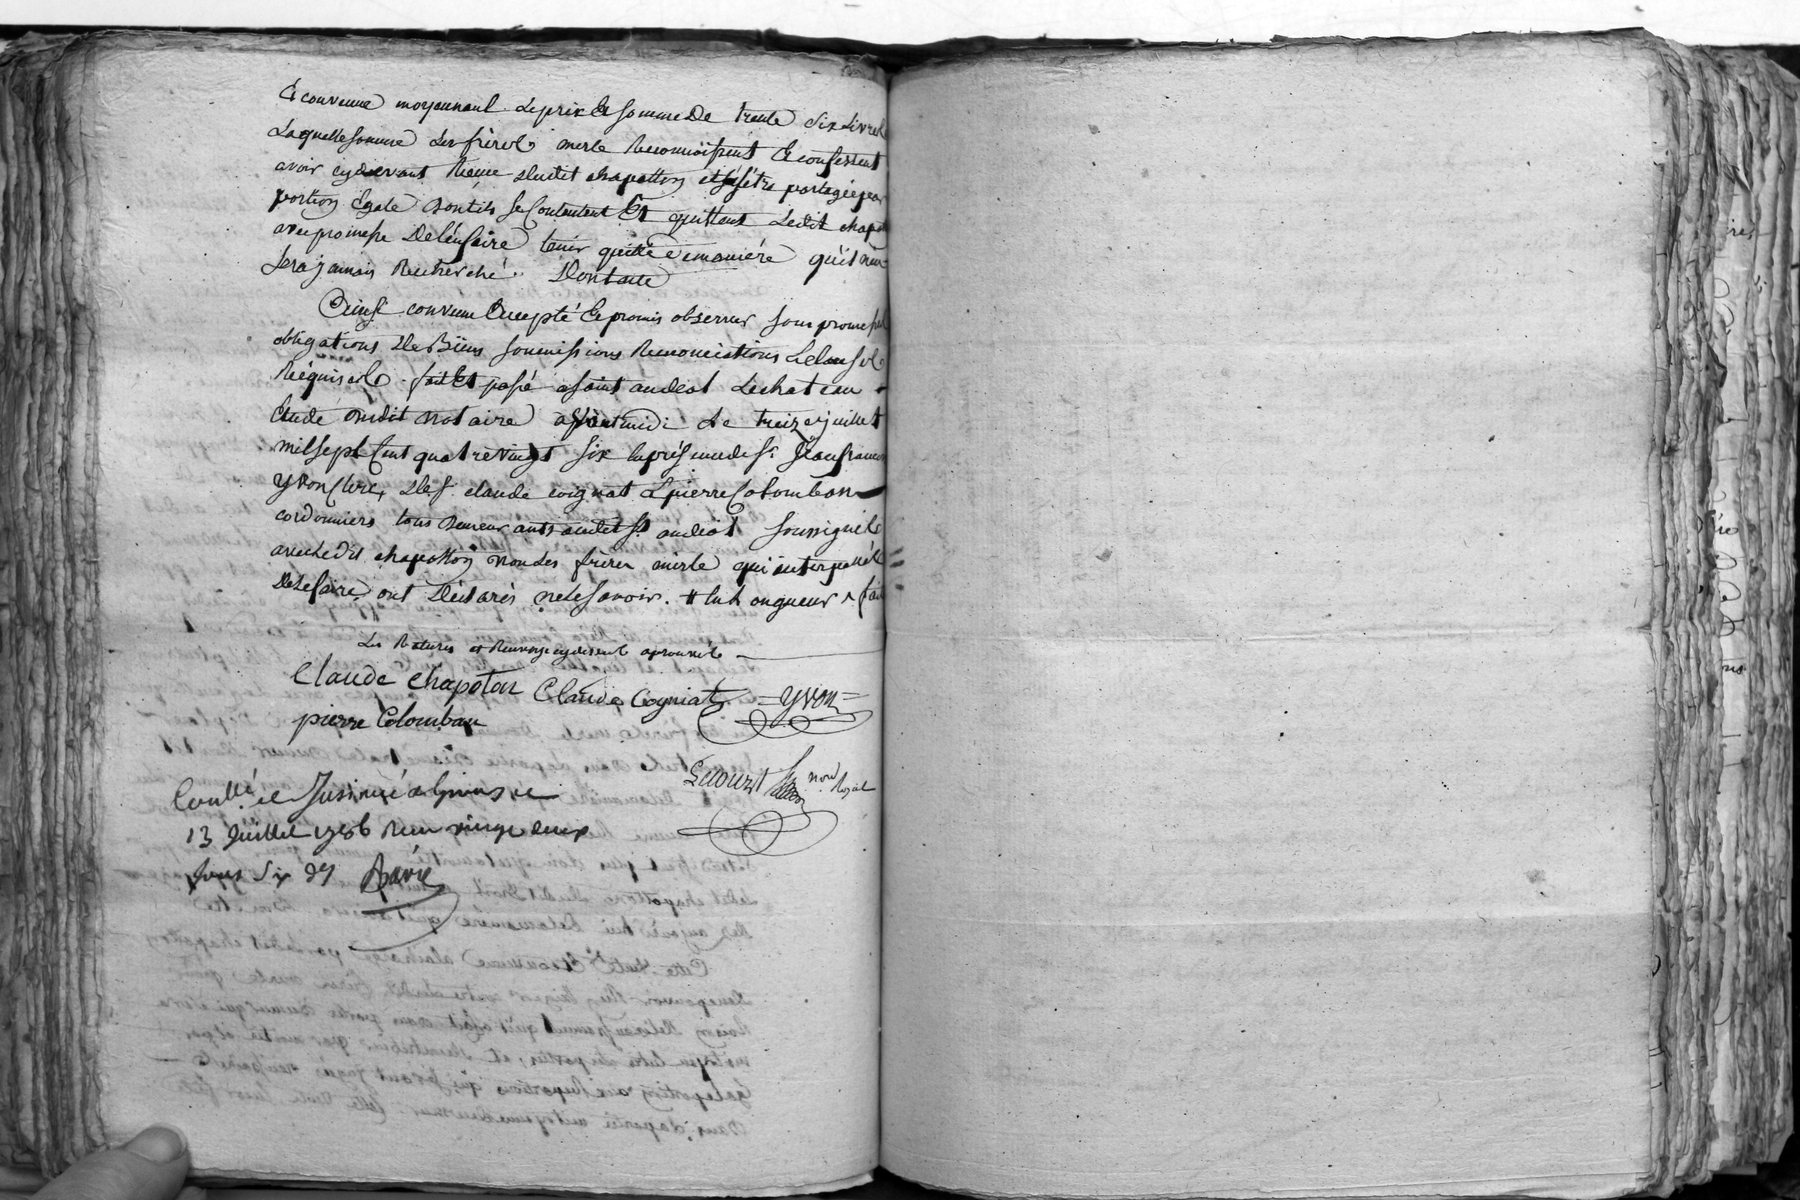 Et convenue moyennant le prix Et somme De trente six Livres
Laquelle somme Les frères merle Reconnoissent Et confessent
avoir cydevant Receue dudit chapotton et s'être partagée par
portion Egale dont ils se Contentent Et quittent Ledit chapot
avec promesse De l'enfaire tenir quitte de manière qu'il n'en
sera jamais Recherché. Dont acte
Ainsi convenu accepté Et promis observer sous promesses
obligations De Biens soumissions Renonciations & clauses
Requises. fait Et passé a saint andeol Le chateau
Etude dudit notaire avant midi Le treize juillet
mil sept Cent quatre vingt six En présence de sr. Jean francois
yvon Clerc, De sr. claude coignat & pierre Colomban
cordonniers tous Demeurants audit st. andeol soussignés
avec Ledit chapotton non Les frères merle qui interpellés
De Le faire ont Déclarés ne le savoir.
Les Ratures et Renvoys cydessus aprouvés
Claude Chapoton Claude Cogniat =yvon=
pierre Colomban
nore. Royal
Conllé. et Insinué a Givors le
13 Juillet 1786 Reçu vingt deux
sous six drs